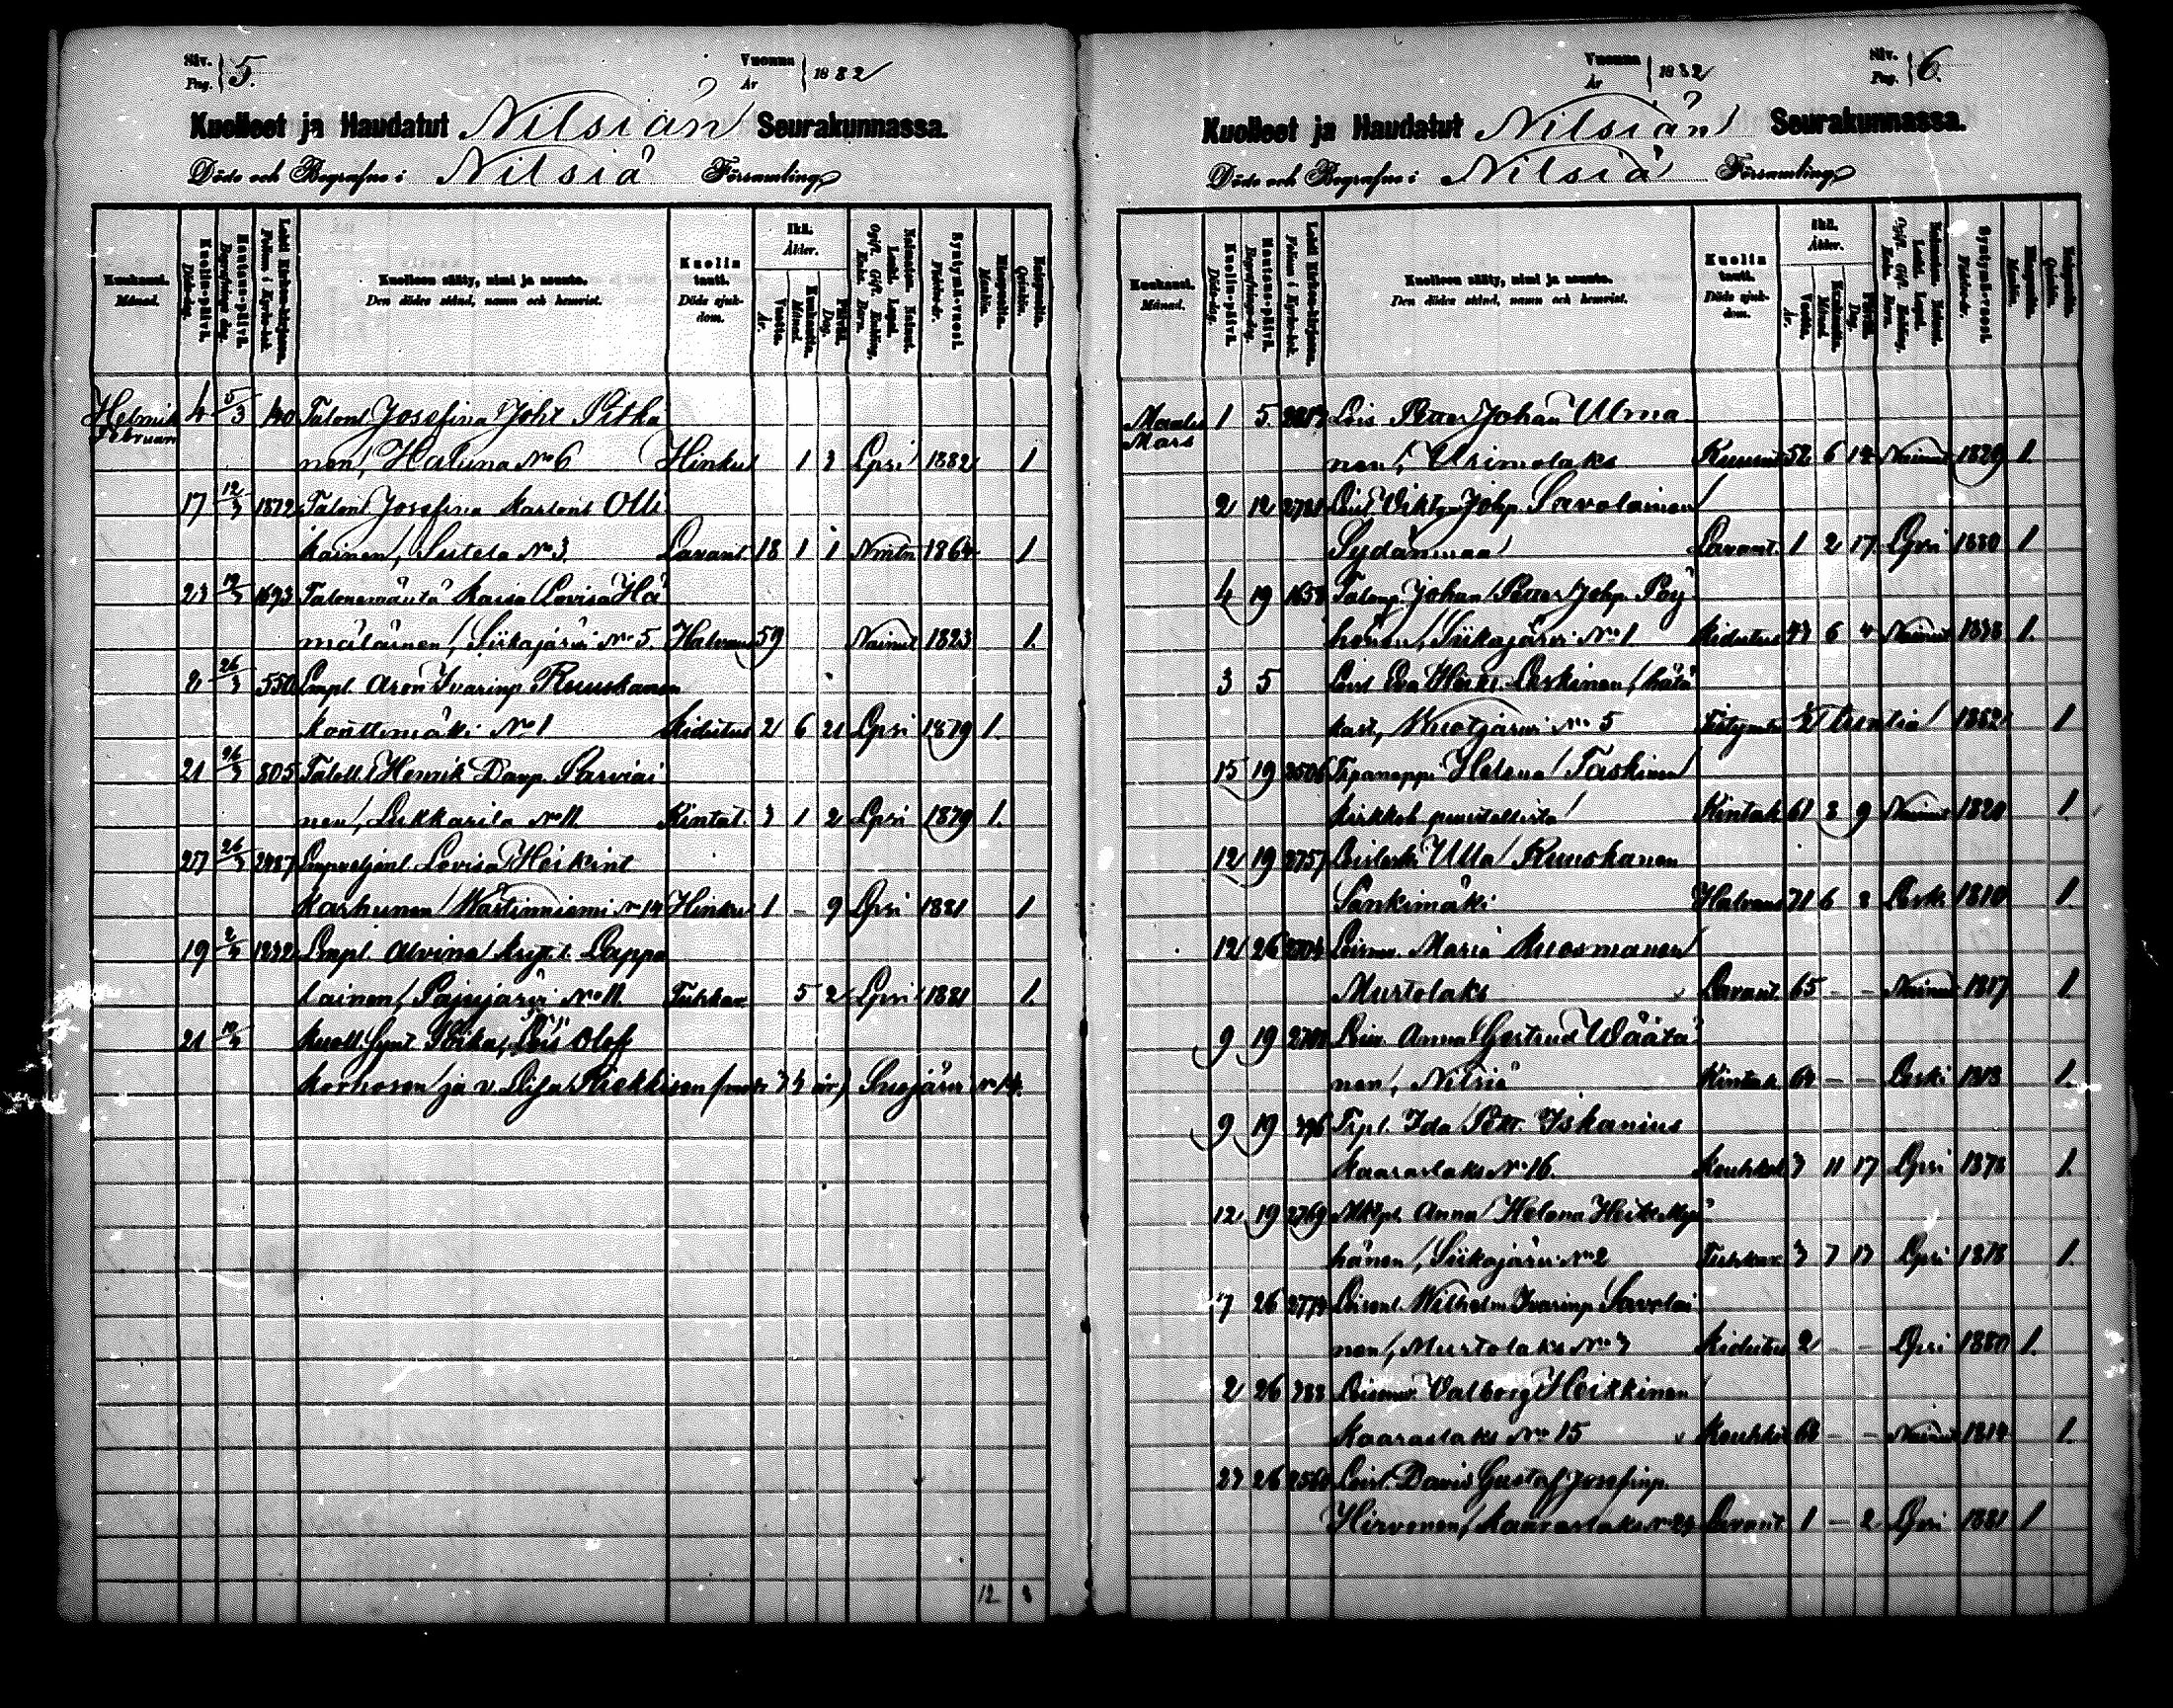 Siv. Pag. 5. Vuonna År 1882
Kuolleet ja Haudatut Nilsiän Seurakunnassa.
Döde och Begrafne i Nilsiä Församling
Kuukausi. Månad.
Kuolin-päivä. Döds-dag.
Hautaus-päivä. Begrafnings-dag.
Lehti Kirkon-kirjassa. Folium i Kyrko-bok.
Kuolleen sääty, nimi ja asunto. Den dödes stånd, namn och hemvist.
Kuolin tauti. Döds sjuk-dom.
Ikä. Ålder.
Vuotta. År.
Kuukautta. Månad.
Päivää. Dag.
Naimaton. Nainut. Leski. Lapsi. Ogift. Gift. Enka. Enkling. Barn.
Syntymä-vuosi. Födelse-år.
Miespuolia. Mankön.
Vaimopuolia. Qvinkön.
Helmik 4 5/3 140 Talont Josefina Joht Pitkä
Februari
nen, Haluna No 6 Hinku 1 3 Lpsi 1882 1
17 12/3 1872 Talont Josefina Karlont Olli
kainen, Sutela No 3. Lavant. 18 1 1 Nmtn 1864 1
23 12/3 1693 Talonemäntä Kaisa Lovisa Hä
mäläinen, Siikajärvi No 5. Halvaus 59 Nainut 1823 1.
8 26/3 550 Lmpl. Aron Ivarinp Ruuskanen
Konttimäki No 1 Kidutus 2 6 21 Lpsi 1879 1.
21 26/3 805 Henrik Danp. Parviai
nen, Lukkarila No 11. Rintat. 3 1 2 Lpsi 1879 1.
27 26/3 2487 Lovisa Heikint
Karhunen Wartinniemi No 14 Hinku 1 - 9 Lpsi 1881 1
19 2/4 1232 Lmpl. Alvina Lappa
lainen, Pajujärvi No 11. Tuhkar. 5 2 Lpsi 1881 1.
21 10/4 Kuoll. Synt Poika, Lois Olof
Korhosen ja v. Liisa Riekkisen Suojärvi No 14.
12 8
Siv. Pag. 6. Vuonna År 1882
Kuolleet ja Haudatut Nilsiän Seurakunnassa.
Döde och Begrafne i Nilsiä Församling
Kuukausi. Månad.
Kuolin-päivä. Döds-dag.
Hautaus-päivä. Begrafnings-dag.
Lehti Kirkon-kirjassa. Folium i Kyrko-bok.
Kuolleen sääty, nimi ja asunto. Den dödes stånd, namn och hemvist.
Kuolin tauti. Döds sjuk-dom.
Ikä. Ålder.
Vuotta. År.
Kuukautta. Månad.
Päivää. Dag.
Naimaton. Nainut. Leski. Lapsi. Ogift. Gift. Enka. Enkling. Barn.
Syntymä-vuosi. Födelse-år.
Miespuolia. Mankön.
Vaimopuolia. Qvinkön.
Maalis 1 5. Lois Petter Johan Ulma
Mars
nen, Urimolaks 52 6 14 Nainut 1829 1.
2 12 2781 Loisl Viktor Johp Savolainen
Sydänmaa Lavant. 1 2 17 Lpsi 1880 1
4 19 1658 Talonp Johan Petter Johp. Pöy
hönen, Siikajärvi No 1. Kidutus 43 6 4 Nainut 1838 1.
3 5 Loisl Eva Heikt. Leskinen, (hätä
kast, Wuotjärvi No 5 1/2 tuntia 1882 1
15 19 2506 Helena Taskinen
Kirkkoh Rintak 61 8 9 Nainut 1820 1.
12 19 2757 Loisleski Ulla Ruuskanen
Sänkimäki Halvaus 71 6 8 Lesk. 1810 1.
12 26 2704 Loismv. Maria Kuosmanen
Murtolaks Lavant. 65 - - Nainut 1817 1.
9 19 Loisv. Anna Gertrud Wäätä
nen, Nilsiä Rintak. 64 - - Leski 1818 1.
9 19 396 Trpl. Ida Pett. Iskanius
Kaaraslaks No 16. Keuhkot. 3 11 17 Lpsi 1878 1.
12 19 2769 Mklpl. Anna Helena Heik
hänen, Siikajärvi No 2 Tuhkar. 3 7 17 Lpsi 1878 1.
7 26 2773 Loisenl. Wilhelm Ivarinp Savolai
nen, Murtolaks No 3 Kidutus 2 - - Lpsi 1880 1.
2 26 388 Loisemv. Valborg Heikkinen
Kaaraslaks No 15 Keuhkot 68 - - Nainut 1814 1.
23 26 2560 Loisl. David Gustaf Josefinp.
Hirvonen, Kaaraslaks No 24 Lavant. 1 - 2 Lpsi 1881 1